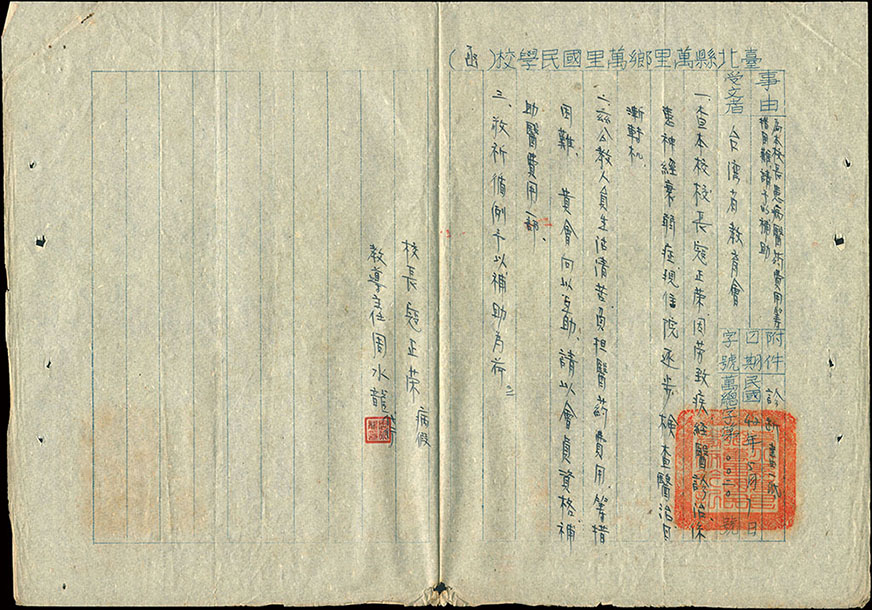 臺北縣萬里鄉萬里國民學校(函)
事由
為本校長患病醫葯費用籌
措困難請予以補助
附件
診斷書一紙
受文者
台灣省教育會
日期
民國43年5月1日
字號
萬總字第0020號
一、查本校校長寇正榮因劳致疾經醫診治係
患神經衰弱症現住院逐步檢查醫治
漸轉机、
二、茲公教人員生活清苦負担醫葯費用、籌措
困難、貴會向以互助、請以會員資格補
助醫費用一部、
三、敬祈循例予以補助為荷。
校長寇正榮 病假
教導主任周水龍